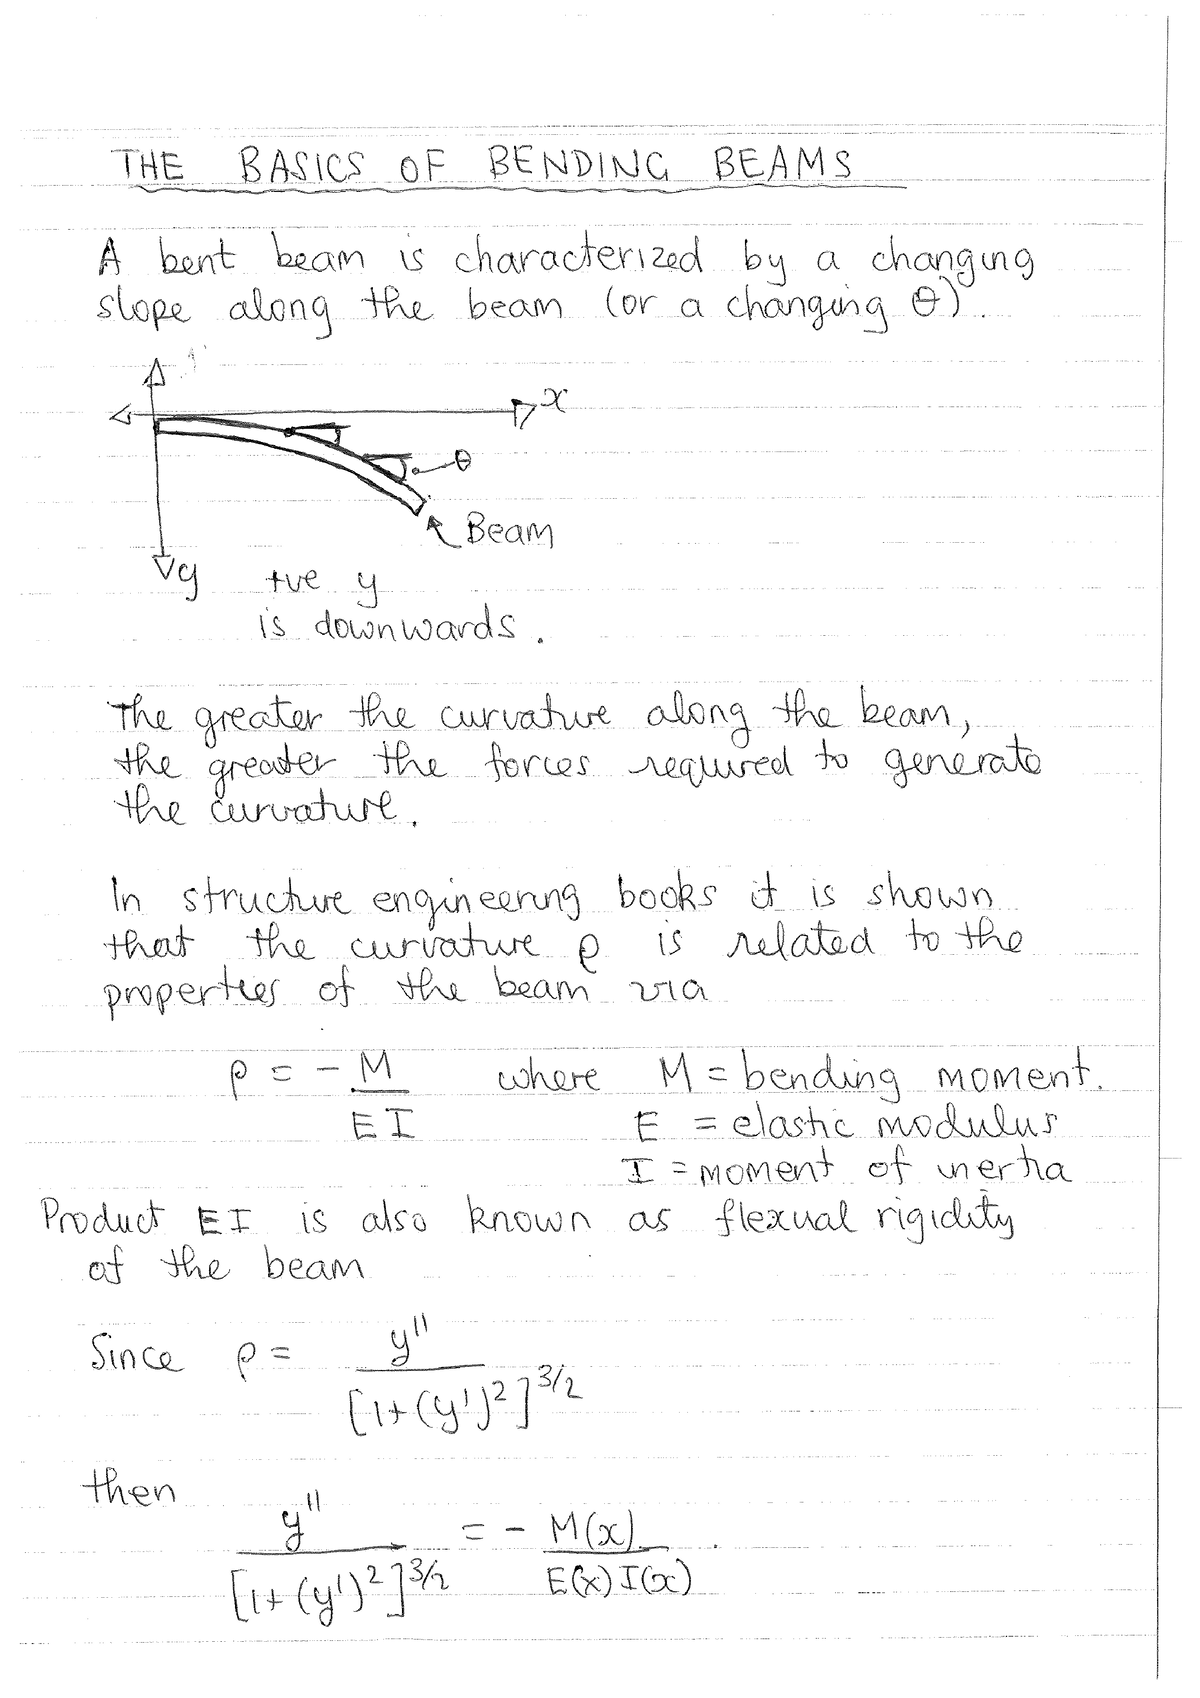 THE BASICS OF BENDING BEAMS
A bent beam is characterized by a changing
slope along the beam (or a changing θ).
x
θ
Beam
y
+ve y
is downwards.
The greater the curvature along the beam,
the greater the forces required to generate
the curvature.
In structure engineering books it is shown
that the curvature ρ is related to the
properties of the beam via
ρ = - M / EI where M = bending moment.
E = elastic modulus
I = moment of inertia
Product EI is also known as flexual rigidity
of the beam
Since ρ = y'' / [1+(y')²]^3/2
then
y'' / [1+(y')²]^3/2 = - M(x) / E(x)I(x).